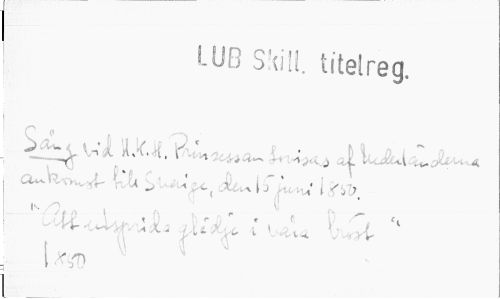 LUB Skill. titelreg.
Sång vid H.K.H. Prinsessan Lovisas af Nederländerna
ankomst till Sverige, den 15 juni 1850.
"Att utsprida glädje i våra bröst"
1850